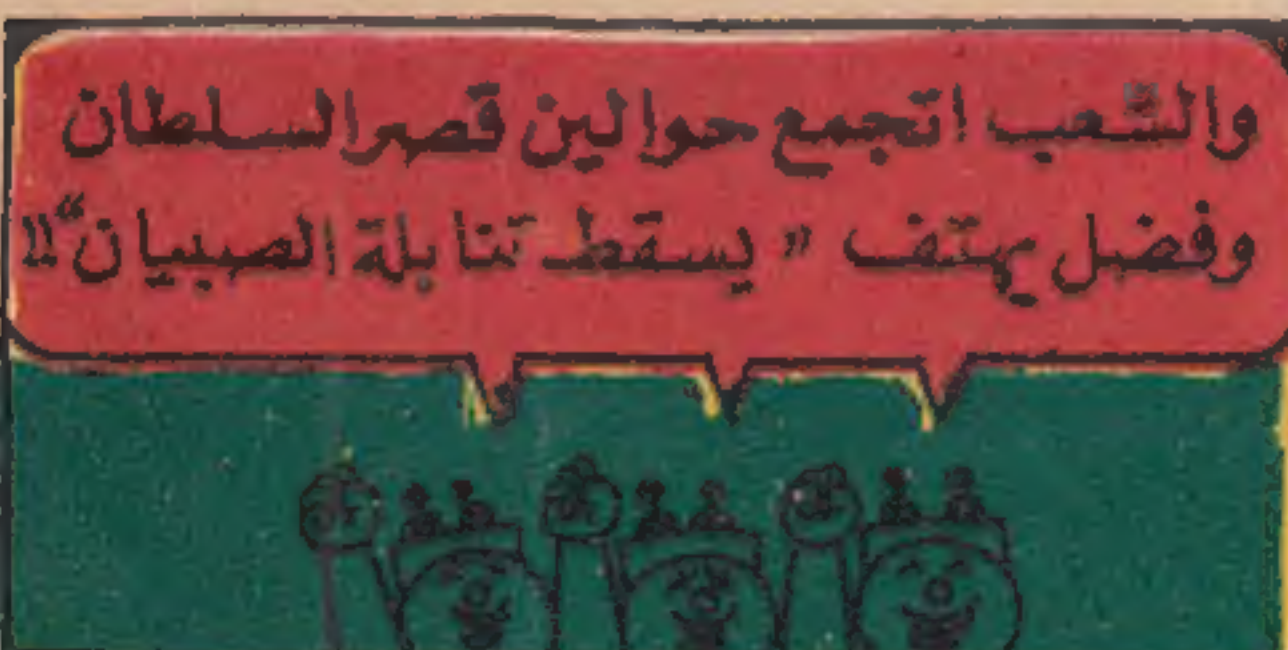 والشّعب اتجمع حوالين قصر السلطان
وفضل يهتف " يسقط تنابلة الصبيان "!!